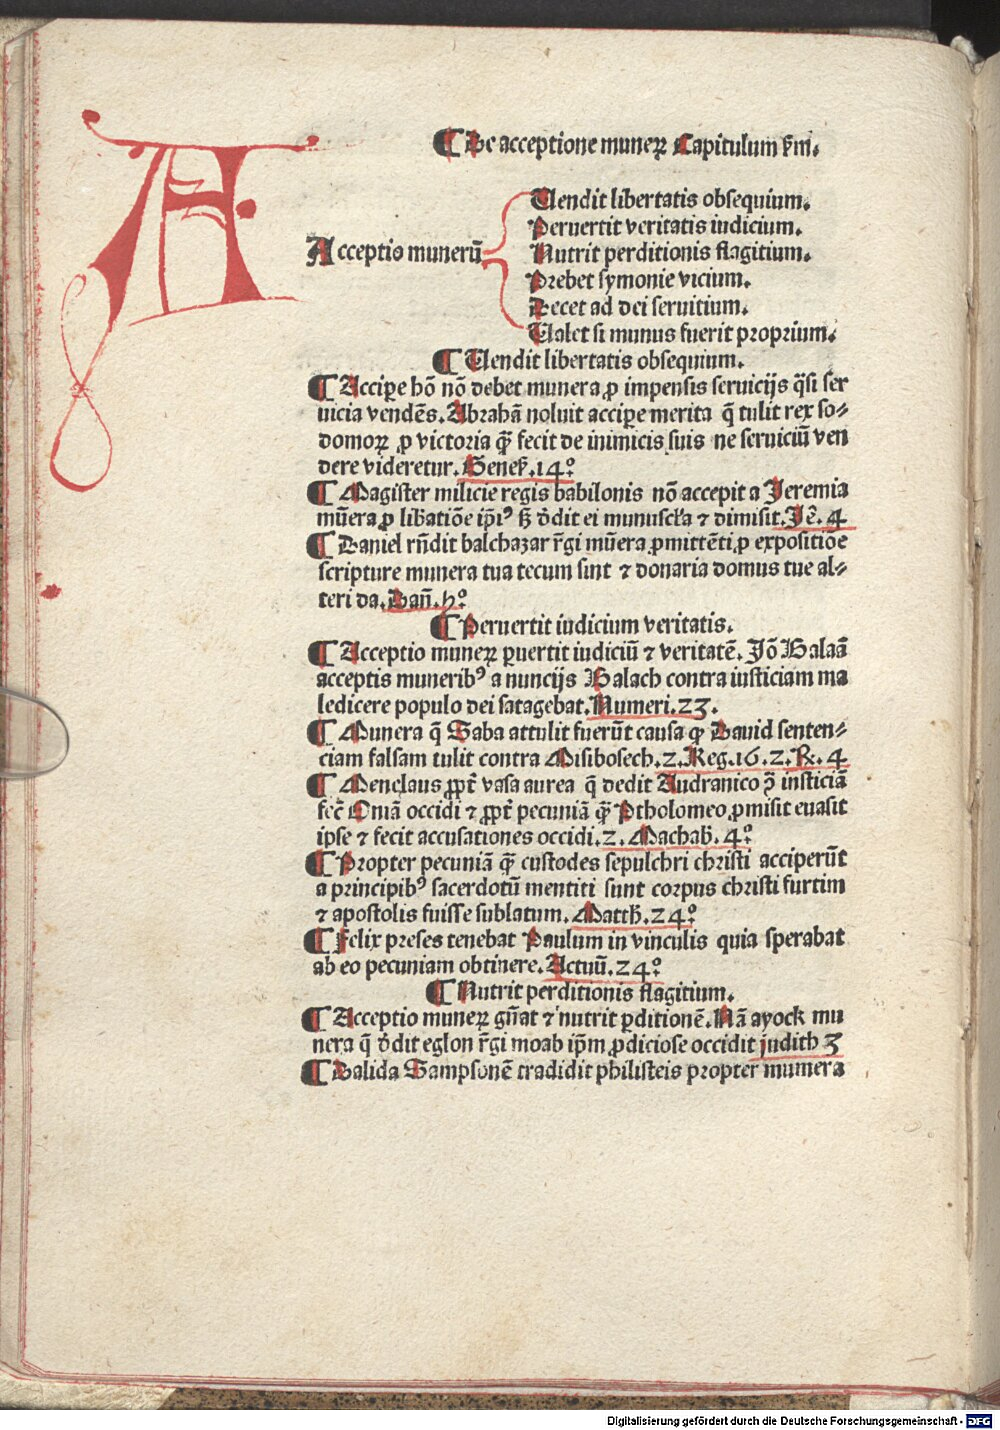 A
¶ De acceptione munerꝝ Capitulum
Vendit libertatis obsequium.
Peruertit veritatis iudicium.
Acceptio munerū
Nutrit perditionis flagitium.
Prebet symonie vicium.
Decet ad dei seruitium.
Valet si munus fuerit proprium.
¶ Uendit libertatis obsequium.
¶ Accipe hō nō debet munera ꝓ impensis seruicijs q̄si ser
uicia vendēs. Abrahā noluit accipe merita q̄ tulit rex so⸗
domorꝝ ꝓ victoria quā fecit de inimicis suis ne seruiciū ven
dere videretur. Geneẜ. 14°
¶ Magister milicie regis babilonis nō accepit a Jeremia
mūera ꝓ lib̄atiōe ip̄iꝰ sꝫ d̄dit ei munuscl̓a ⁊ dimisit. Je̅. 4
¶ Daniel rn̄dit balthazar r̄gi mūera ꝓmittēti ꝓ expositiōe
scripture munera tua tecum sint ⁊ donaria domus tue al⸗
teri da. Dañ. 5°
¶ Peruertit iudicium veritatis.
¶ Acceptio munerꝝ ꝑuertit iudiciū ⁊ veritatē. Jō Balaā
acceptis muneribꝰ a nuncijs Balach contra iusticiam ma
ledicere populo dei satagebat. Numeri. 23.
¶ Munera q̄ Saba attulit fuerūt causa ꝙ Dauid senten⸗
ciam falsam tulit contra Misibosech. 2. Reg. 16. 2. R̄. 4
¶ Menelaus ꝓpt̄ vasa aurea q̄ dedit Andranico ꝯ̄ insticiā
fec̄ Oniā occidi ⁊ ꝓpt̄ pecuniā quā Ptholomeo ꝓmisit euasit
ipse ⁊ fecit accusationes occidi. 2. Machab̄. 4°
¶ Propter pecuniā quā custodes sepulchri christi acciperūt
a principibꝰ sacerdotū mentiti sunt corpus christi furtim
⁊ apostolis fuisse sublatum. Matth̄. 24°
¶ Felix preses tenebat Paulum in vinculis quia sperabat
ab eo pecuniam obtinere. Actuū. 24°
¶ Nutrit perditionis flagitium.
¶ Acceptio munerꝝ gn̄at ⁊ nutrit ꝑditionē. Nā ayock mu
nera q̄ d̄dit eglon r̄gi moab ip̄m ꝓdiciose occidit judith 3
¶ Dalida Sampsonē tradidit philisteis propter munera
Digitalisierung gefördert durch die Deutsche Forschungsgemeinschaft - DFG